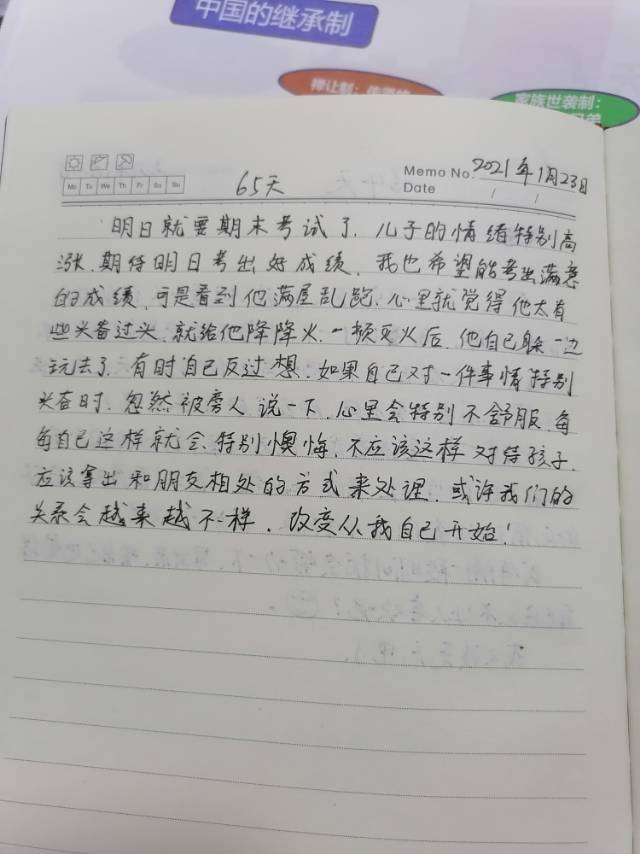 中国的继承制
禅让制：
家族世袭制：
Mo Tu We Th Fr Sa Su
65天
Memo No. 2021年1月23日
Date / /
明日就要期末考试了，儿子的情绪特别高
涨，期待明日考出好成绩，我也希望能考出满意
的成绩，可是看到他满屋乱跑，心里就觉得他太有
些兴奋过头，就给他降降火，一顿灭火后，他自己躲一边
玩去了，有时自己反过想，如果自己对一件事情特别
兴奋时，忽然被旁人说一下，心里会特别不舒服，每
每自己这样就会特别懊悔，不应该这样对待孩子，
应该拿出和朋友相处的方式来处理，或许我们的
关系会越来越不一样，改变从我自己开始！